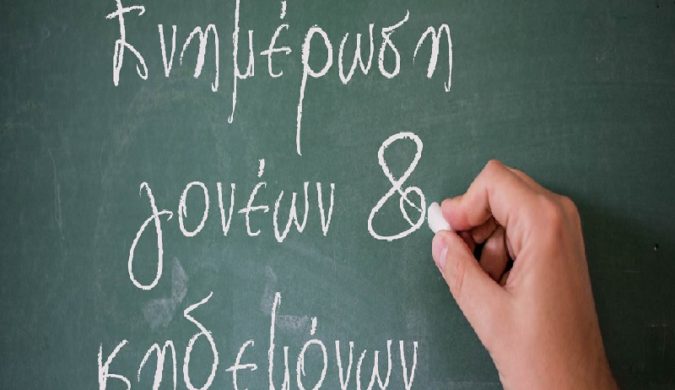 Ενημέρωση
γονέων &
κηδεμόνων